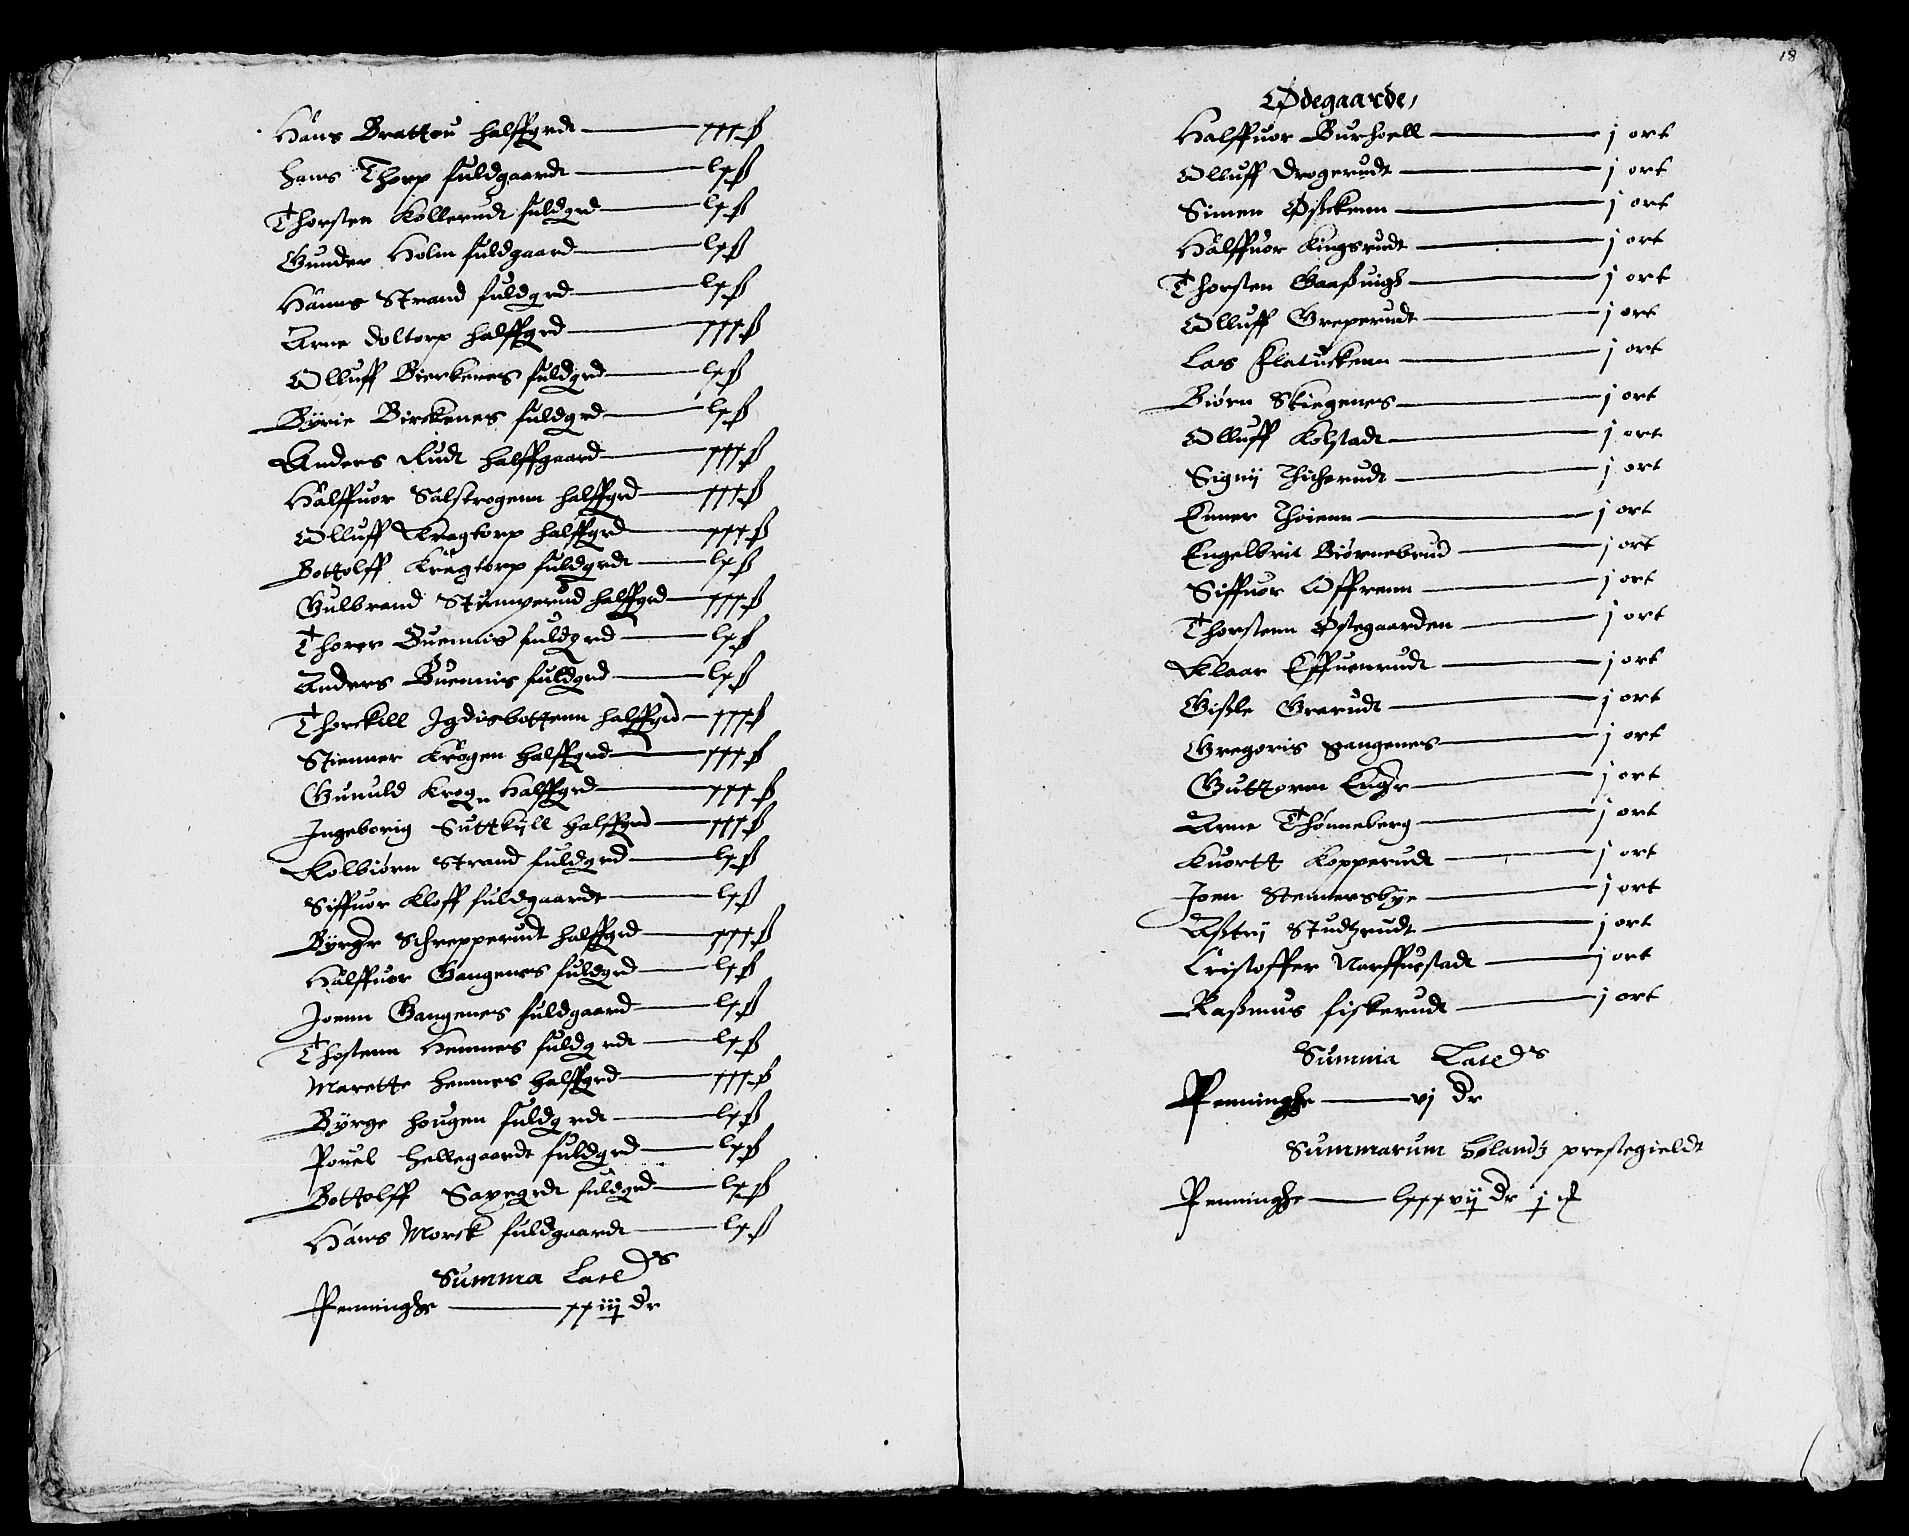 18
Hans Brattou halffgrdt — xxx ß
Hans Thorp fuldgaardt — lx ß
Thorsten Kollerudt fuldgrd — lx ß
Gunder Holm fuldgaard — lx ß
Hanns Strand fuldgrd — lx ß
Arne Doltorp halffgrd — xxx ß
Olluff Bierkenes fuldgrd — lx ß
Byrie Birckenes fuldgrd — lx ß
Anders Rudt halffgaard — xxx ß
Halffuor Salstrogenn halffgrd — xxx ß
Olluff Kragtorp halffgrd — xxx ß
Bottolff Kragtorp fuldgrdt — lx ß
Gulbrand halffgrd — xxx ß
Thorer Buennis fuldgrd — lx ß
Anders Buennis fuldgrd — lx ß
Thorckill halffgrd — xxx ß
Stienner Krogen halffgrd — xxx ß
Gunuld Krogn Halffgrd — xxx ß
Ingeborig Suttkyll halffgrd — xxx ß
Kolbiørn Strand fuldgrd — lx ß
Siffuor Kloff fuldgaardt — lx ß
Byrgr Schrepperudt halffgrd — xxx ß
Halffuor Gangenes fuldgrd — lx ß
Joenn Gangenes fuldgaard — lx ß
Thostenn Hemnes fuldgrdt — lx ß
Marette Hemnes halffgrd — xxx ß
Byrge Hougen fuldgrdt — lx ß
Pouel Hellegaardt fuldgrd — lx ß
Bottolff fuldgrd — lx ß
Hans Morck fuldgaardt — lx ß
Summa Lateds
Penninghe — xxiij dr
Ødegaarde,
Halffuor Burholl — j ort
Olluff Drogerudt — j ort
Simen Øßckenn — j ort
Halffuor Kingsrudt — j ort
Thorsten Gaaßuigh — j ort
Olluff Greperudt — j ort
Las Flatuckenn — j ort
Biørn Skiegenes — j ort
Olluff Kolstadt — j ort
Signij Thicherudt — j ort
Enner Thoienn — j ort
Engelbrit Biørnebrud — j ort
Siffuor Offrenn — j ort
Thorstenn Østegaarden — j ort
Klaar Effuenrudt — j ort
Gißle Grerudt — j ort
Gregoris gangenes — j ort
Guttorm Engr — j ort
Arne Thønneberg — j ort
Kuortt Kopperudt — j ort
Joen Stemersbye — j ort
Aßtrj Studtzrudt — j ort
Cristoffer Narffuestadt — j ort
Raßmus fiskerudt — j ort
Summa Lateds
Penninghe — vj dr
Summarum Hølandtz prestegieldt
Penninghe — lxxxvij dr j